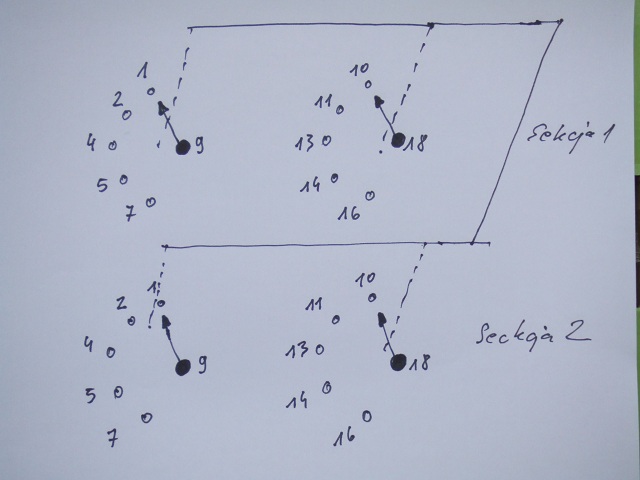 1
10
2
11
4
9
13
18
Sekcja 1
5
14
7
16
1
10
2
11
4
9
13
18
Seckja 2
5
14
7
16